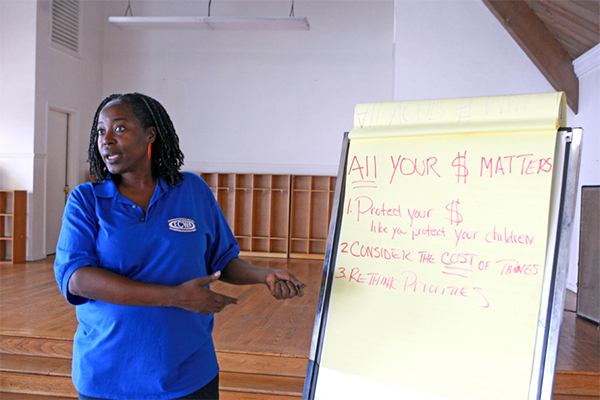 All YOUR $ MATTERS
1. Protect your $
like you protect your children
2 CONSIDER THE COST OF THINGS
3. RETHINK PRIORITIES